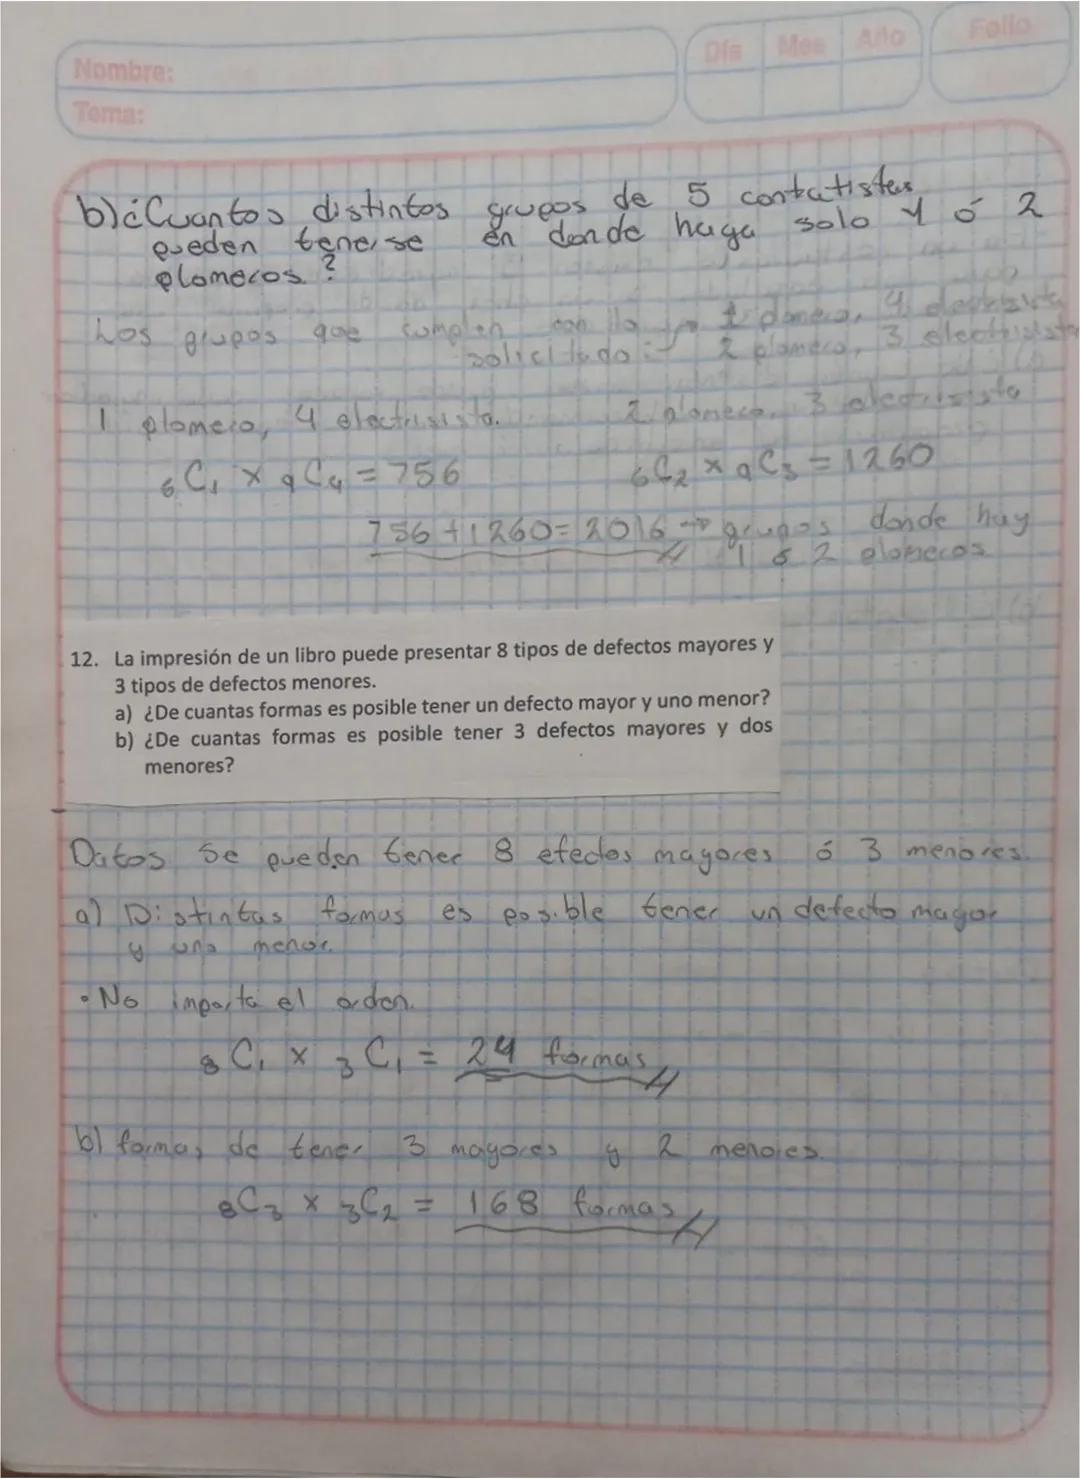 Nombre:
Tema:
Día Mes Año
Folio
b) ¿Cuantos distintos grupos de 5 contatistas
pueden tenerse en donde haya solo 1 ó 2
plomeros?
Los grupos que cumplen con lo → 1 plomero, 4 electrisista
solicitado: → 2 plomero, 3 electrisista
1 plomero, 4 electrisista. 2 plomero, 3 electrisista
6C1 x 9C4 = 756 6C2 x 9C3 = 1260
756 + 1260 = 2016 → grupos donde hay
1 ó 2 plomeros
12. La impresión de un libro puede presentar 8 tipos de defectos mayores y
3 tipos de defectos menores.
a) ¿De cuantas formas es posible tener un defecto mayor y uno menor?
b) ¿De cuantas formas es posible tener 3 defectos mayores y dos
menores?
Datos Se pueden tener 8 efectos mayores ó 3 menores.
a) Distintas formas es posible tener un defecto mayor
y uno menor.
• No importa el orden.
8C1 x 3C1 = 24 formas
b) formas de tener 3 mayores y 2 menores.
8C3 x 3C2 = 168 formas